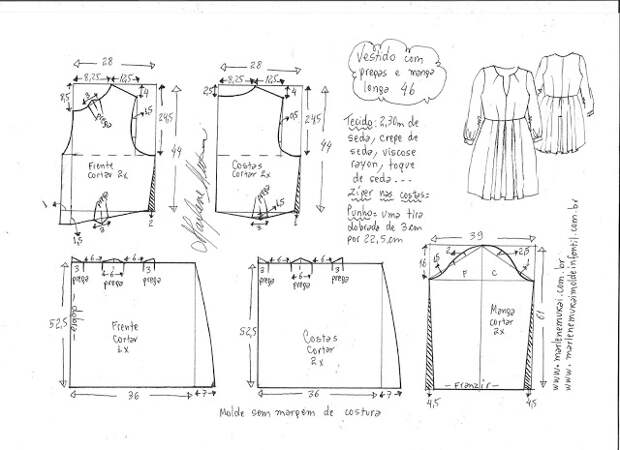 Vestido com
pregas e manga
longa 46
Tecido: 2,30m de
seda, crepe de
seda, viscose
rayon, toque
de seda...
Ziper nas costas=
Punho= uma tira
dobrada de 3cm
por 22,5cm
28
8,25
12,5
8,5
3
prega
4
1,5
24,5
44
Frente
cortar 2x
prega
3
1
1,5
2
Marlene Mukai
28
8,25
12,5
2,5
4
0,5
24,5
44
Costas
cortar 2x
prega
3
1,5
1
39
16
1,5
2
2,5
1,5
F
C
61
Manga
cortar
2x
-Franzir-
4,5
4,5
www.marlenemukai.com.br
www.marlenemukaimoldeinfantil.com.br
6
6
3
prega
6
prega
3
prega
52,5
- dobra -
Frente
cortar
1x
36
7
6
6
3
prega
6
prega
3
prega
52,5
Costas
Cortar
2x
36
7
Molde sem margem de costura